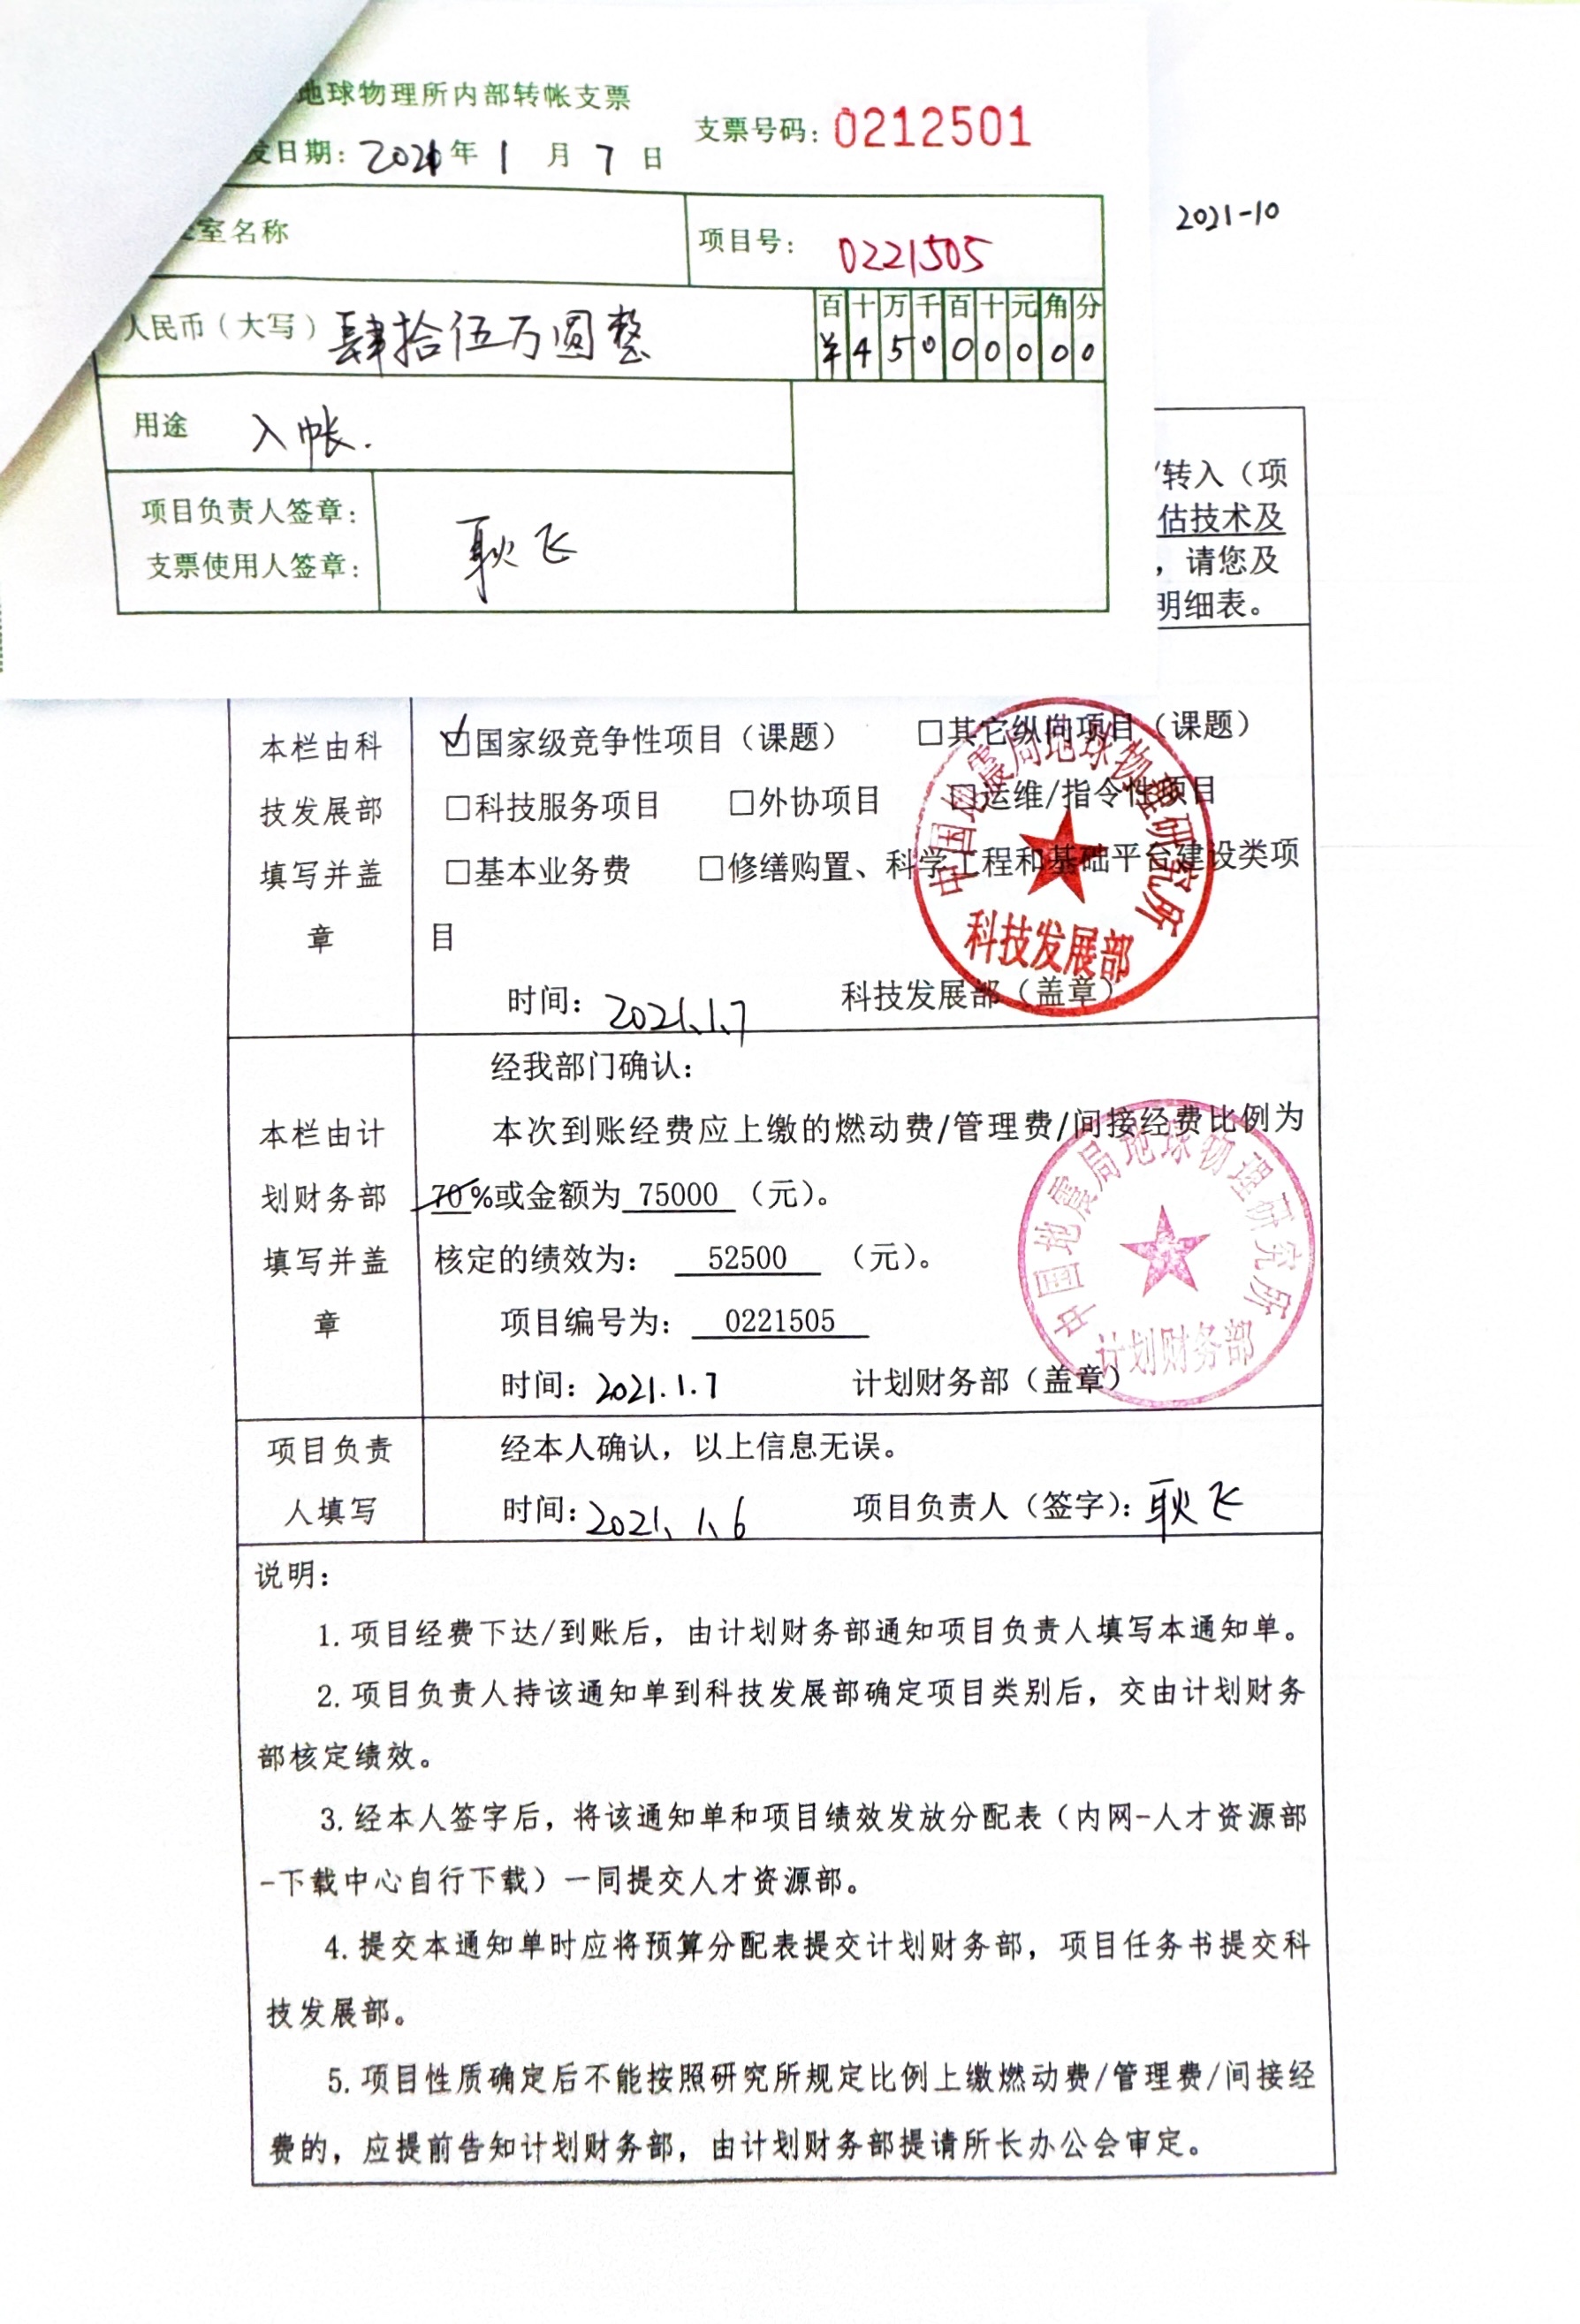 地球物理所内部转帐支票
支票号码：0212501
发日期：2021年 1 月 7 日
2021-10
室名称
项目号：0221505
人民币（大写）肆拾伍万圆整
百十万千百十元角分
¥45000000
用途 入帐.
项目负责人签章：
支票使用人签章：
耿飞
/转入（项
估技术及
，请您及
明细表。
本栏由科技发展部填写并盖章
☑国家级竞争性项目（课题） □其它纵向项目（课题）
□科技服务项目 □外协项目 □运维/指令性项目
□基本业务费 □修缮购置、科学工程和基础平台建设类项
目
时间：2021.1.7 科技发展部（盖章）
中国地震局地球物理研究所
科技发展部
本栏由计划财务部填写并盖章
经我部门确认：
本次到账经费应上缴的燃动费/管理费/间接经费比例为
70%或金额为 75000 （元）。
核定的绩效为： 52500 （元）。
项目编号为： 0221505
时间：2021.1.7 计划财务部（盖章）
中国地震局地球物理研究所
计划财务部
项目负责人填写
经本人确认，以上信息无误。
时间：2021.1.6 项目负责人（签字）：耿飞
说明：
1.项目经费下达/到账后，由计划财务部通知项目负责人填写本通知单。
2.项目负责人持该通知单到科技发展部确定项目类别后，交由计划财务
部核定绩效。
3.经本人签字后，将该通知单和项目绩效发放分配表（内网-人才资源部
-下载中心自行下载）一同提交人才资源部。
4.提交本通知单时应将预算分配表提交计划财务部，项目任务书提交科
技发展部。
5.项目性质确定后不能按照研究所规定比例上缴燃动费/管理费/间接经
费的，应提前告知计划财务部，由计划财务部提请所长办公会审定。